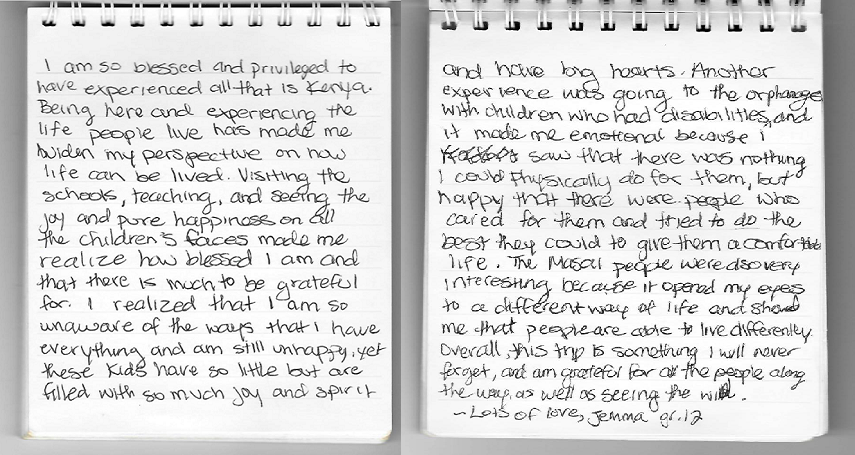 I am so blessed and privileged to
have experienced all that is Kenya.
Being here and experiencing the
life people live has made me
widen my perspective on how
life can be lived. Visiting the
schools, teaching, and seeing the
joy and pure happiness on all
the children's faces made me
realize how blessed I am and
that there is much to be grateful
for. I realized that I am so
unaware of the ways that I have
everything and am still unhappy, yet
these kids have so little but are
filled with so much joy and spirit
and have big hearts. Another
experience was going to the orphanages
with children who had disabilities, and
it made me emotional because I
saw that there was nothing
I could physically do for them, but
happy that there were people who
cared for them and tried to do the
best they could to give them a comfortable
life. The Masai people were also very
interesting because it opened my eyes
to a different way of life and showed
me that people are able to live differently.
Overall, this trip is something I will never
forget, and am grateful for all the people along
the way, as well as seeing the wild.
~Lots of love, Jemma gr.12